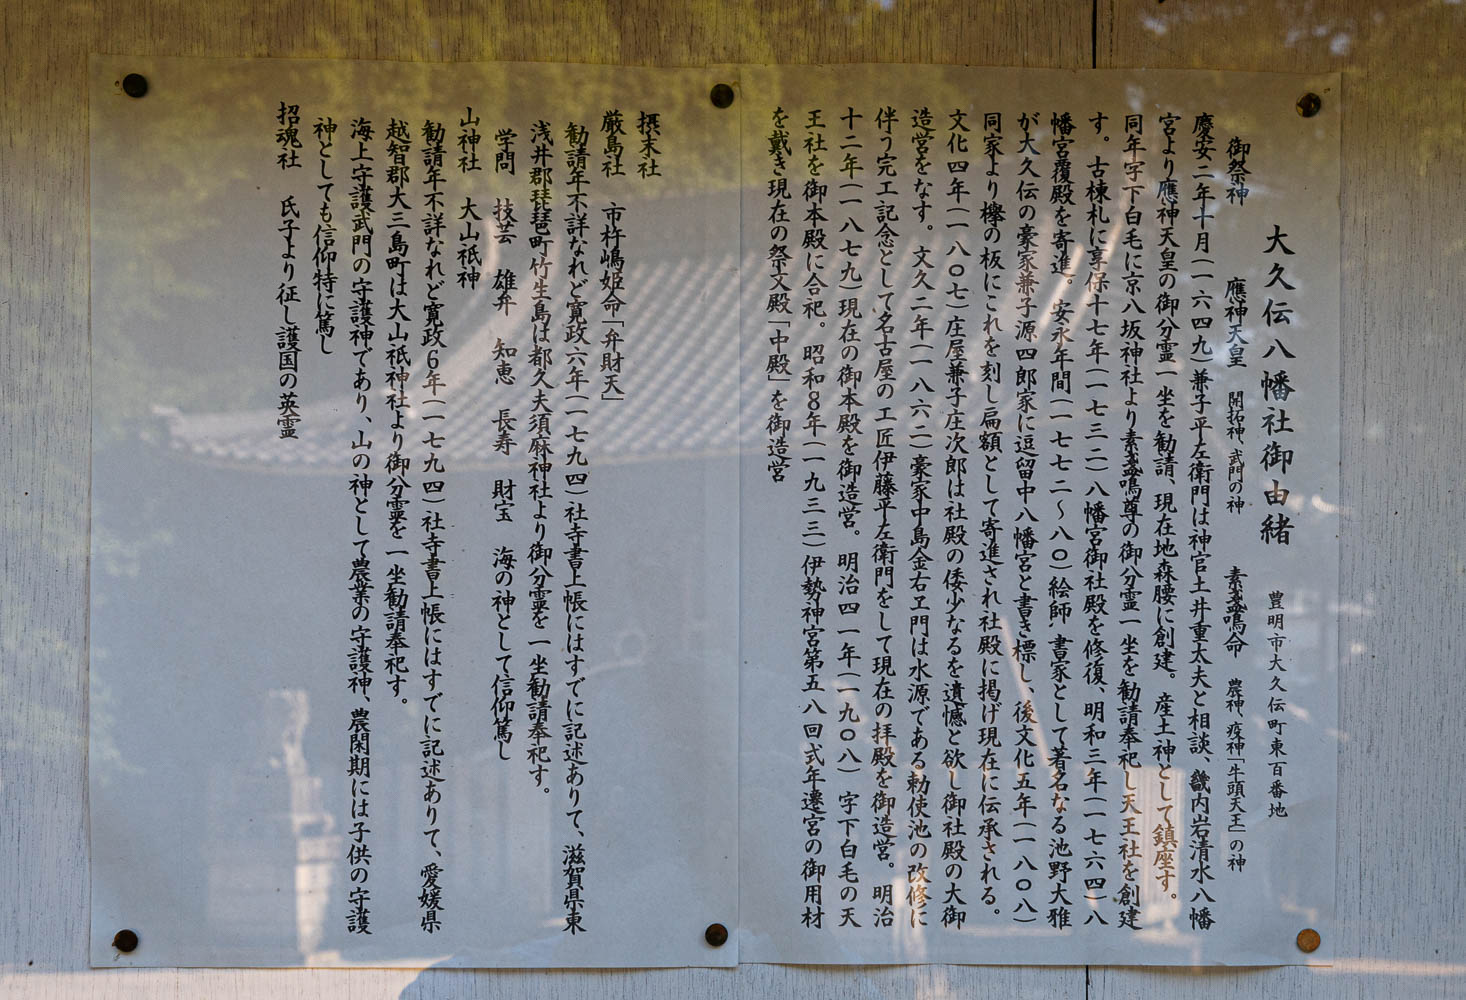 大久伝八幡社御由緒　豊明市大久伝町東百番地
御祭神　應神天皇　開拓神、武門の神　素盞鳴命　農神、疫神「牛頭天王」の神
慶安二年十月（一六四九）兼子平左衛門は神官土井重太夫と相談、畿内岩清水八幡
宮より應神天皇の御分霊一坐を勧請、現在地森腰に創建。産土神として鎮座す。
同年字下白毛に京八坂神社より素盞鳴尊の御分霊一坐を勧請奉祀し天王社を創建
す。古棟札に享保十七年（一七三二）八幡宮御社殿を修復、明和三年（一七六四）八
幡宮覆殿を寄進。安永年間（一七七二～八〇）絵師　書家として著名なる池野大雅
が大久伝の豪家兼子源四郎家に逗留中八幡宮と書き標し、後文化五年（一八〇八）
同家より欅の板にこれを刻し扁額として寄進され社殿に掲げ現在に伝承される。
文化四年（一八〇七）庄屋兼子庄次郎は社殿の倭少なるを遺憾と欲し御社殿の大御
造営をなす。文久二年（一八六二）豪家中島金右ヱ門は水源である勅使池の改修に
伴う完工記念として名古屋の工匠伊藤平左衛門をして現在の拝殿を御造営。明治
十二年（一八七九）現在の御本殿を御造営。明治四一年（一九〇八）字下白毛の天
王社を御本殿に合祀。昭和8年（一九三三）伊勢神宮第五八回式年遷宮の御用材
を戴き現在の祭文殿「中殿」を御造営
摂末社
厳島社　市杵嶋姫命「弁財天」
勧請年不詳なれど寛政六年（一七九四）社寺書上帳にはすでに記述ありて、滋賀県東
浅井郡琵琶町竹生島は都久夫須麻神社より御分霊を一坐勧請奉祀す。
学問　技芸　雄弁　知恵　長寿　財宝　海の神として信仰篤し
山神社　大山祇神
勧請年不詳なれど寛政6年（一七九四）社寺書上帳にはすでに記述ありて、愛媛県
越智郡大三島町は大山祇神社より御分霊を一坐勧請奉祀す。
海上守護武門の守護神であり、山の神として農業の守護神、農閑期には子供の守護
神としても信仰特に篤し
招魂社　氏子より征し護国の英霊